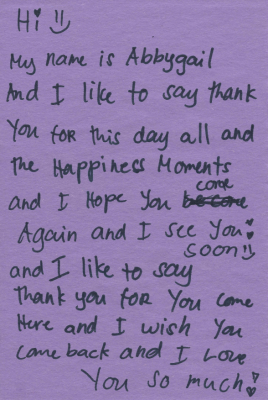 Hi
My name is Abbygail
And I like to say thank
You for this day all and
the Happiness Moments
and I Hope You come
Again and I see You
soon
and I like to say
Thank you for You came
Here and I wish You
came back and I Love
You so much